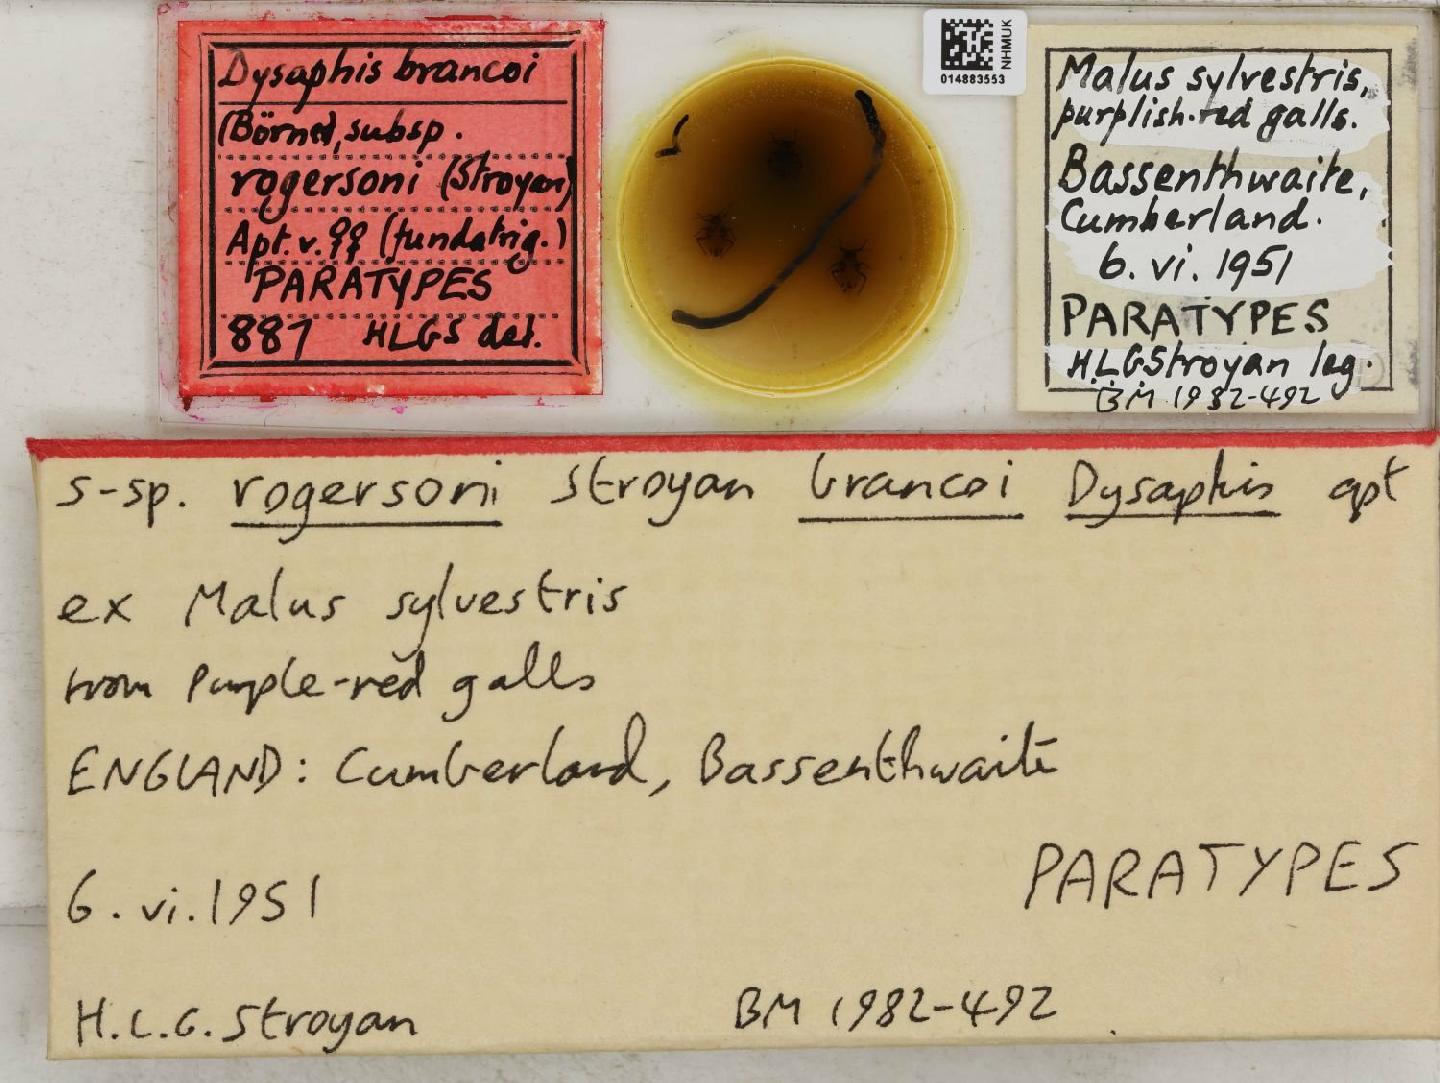 Dysaphis brancoi
(Börner), subsp.
rogersoni (Stroyan)
Apt. v. ♀♀ (fundatrig.)
PARATYPES
887 HLGS det.
NHMUK
014883553
Malus sylvestris,
purplish-red galls.
Bassenthwaite,
Cumberland.
6. vi. 1951
PARATYPES
H.L.G Stroyan leg.
BM 1982-492
s-sp. rogersoni Stroyan brancoi Dysaphis apt
ex Malus sylvestris
from purple-red galls
ENGLAND: Cumberland, Bassenthwaite
PARATYPES
6. vi. 1951
H.L.G. Stroyan BM 1982-492